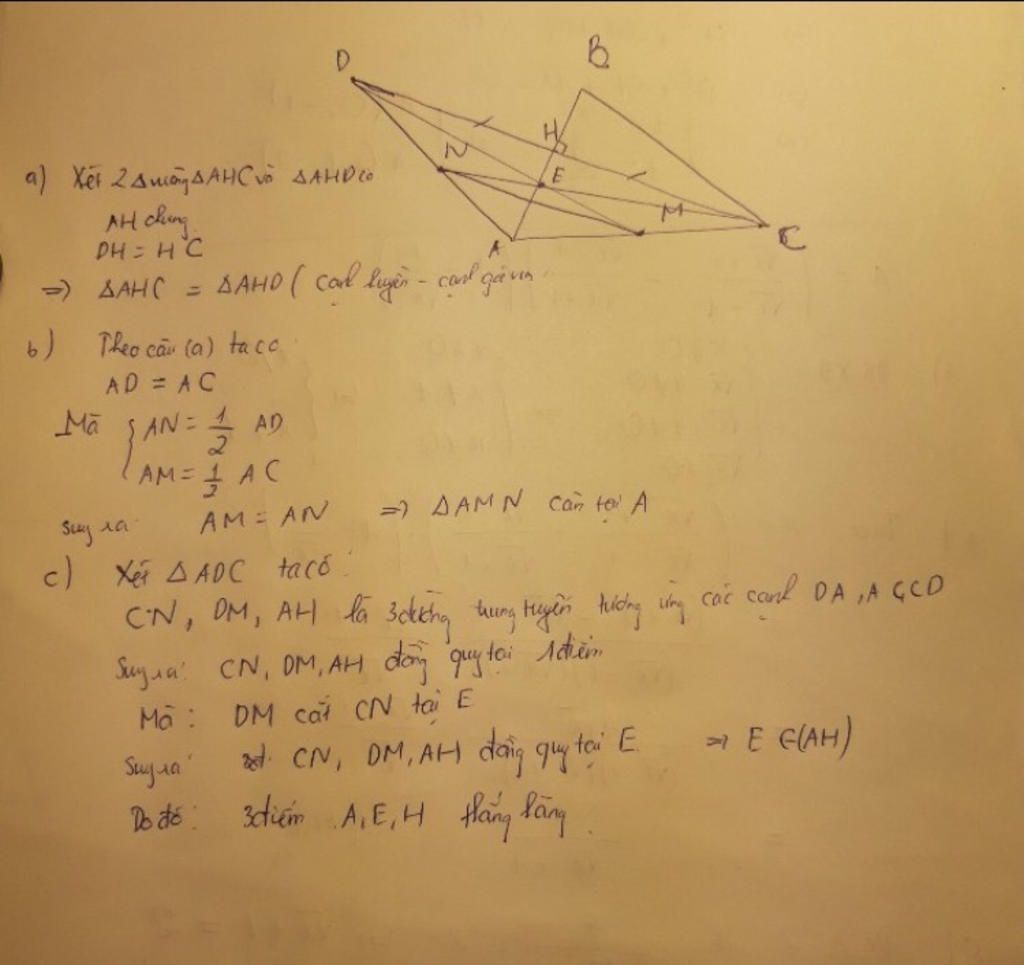 D
B
H
N
E
M
A
C
a) Xét 2Δ vuông ΔAHC và ΔAHD có
AH chung
DH = HC
=> ΔAHC = ΔAHD ( cạnh huyền - cạnh góc
b) Theo câu (a) ta có
AD = AC
Mà { AN = 1/2 AD
AM = 1/2 AC
Suy ra: AM = AN => ΔAMN cân tại A
c) Xét ΔADC ta có:
CN, DM, AH là 3 đường trung tuyến tương ứng các cạnh DA, AC, CD
Suy ra: CN, DM, AH đồng quy tại 1 điểm
Mà: DM cắt CN tại E
Suy ra: CN, DM, AH đồng quy tại E => E ∈ (AH)
Do đó: 3 điểm A, E, H thẳng hàng.